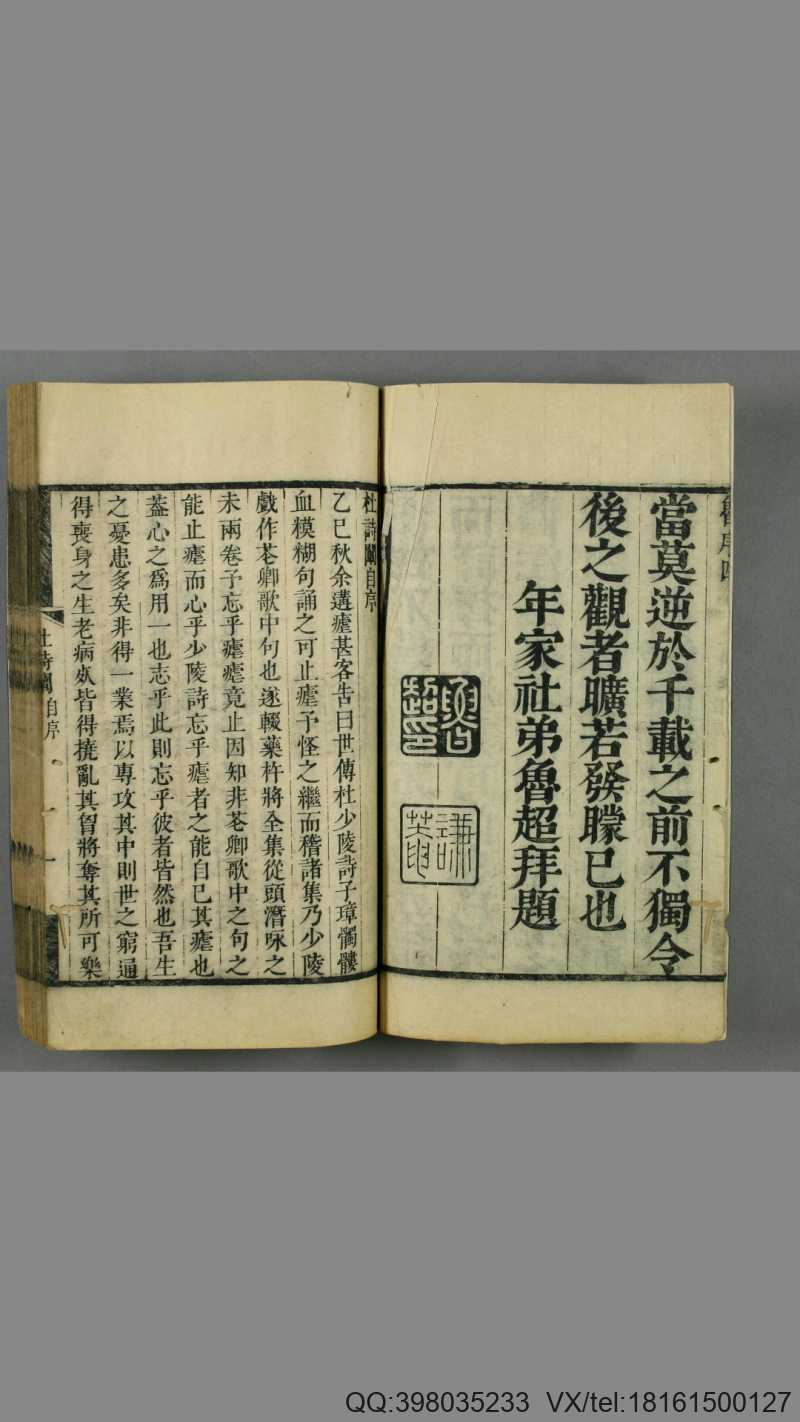 魯序四
當莫逆於千載之前不獨令
後之觀者曠若發矇已也
年家社弟魯超拜題
魯超之印
謙菴
杜詩闡自序
乙巳秋余遘瘧甚客告曰世傳杜少陵詩子璋髑髏
血模糊句誦之可止瘧予怪之繼而稽諸集乃少陵
戲作花卿歌中句也遂輟藥杵將全集從頭潛咏之
未兩卷予忘乎瘧瘧竟止因知非花卿歌中之句之
能止瘧而心乎少陵詩忘乎瘧者之能自已其瘧也
葢心之爲用一也志乎此則忘乎彼者皆然也吾生
之憂患多矣非得一業焉以專攻其中則世之窮通
得喪身之生老病死皆得撓亂其胷將奪其所可樂
杜詩闡自序
一
QQ:398035233 VX/tel:18161500127